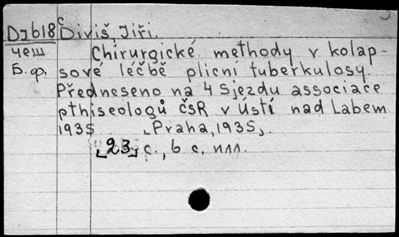 Dj618 Diviš, Jiří.
чеш Chirurgické methody v kolap-
Б.ф. sové léčbě plicní tuberkulosy.
Předneseno na 4 sjezdu associace
pthiseologů ČSR v Ústí nad Labem
1935 [Praha, 1935].
[23] с., 6 с. илл.